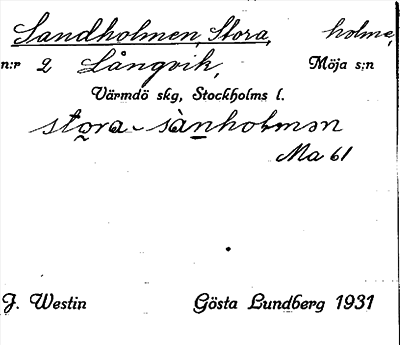 Sandholmen, Stora, holme,
n:r 2 Långvik, Möja s:n
Värmdö skg, Stockholms l.
stora-sànholmən
Ma 61
J. Westin Gösta Lundberg 1931